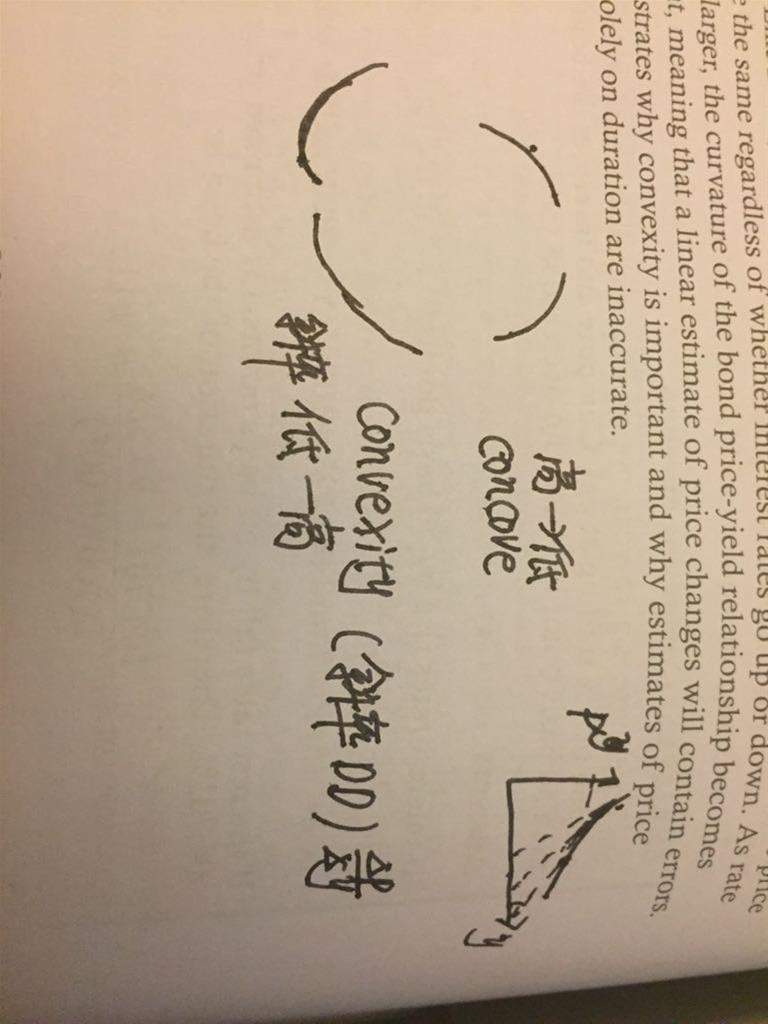 the same regardless of whether interest rates go up or down. As rate
larger, the curvature of the bond price-yield relationship becomes
t, meaning that a linear estimate of price changes will contain errors.
strates why convexity is important and why estimates of price
olely on duration are inaccurate.
高→低
concave
y
Convexity (斜率DD)
斜率 低—高